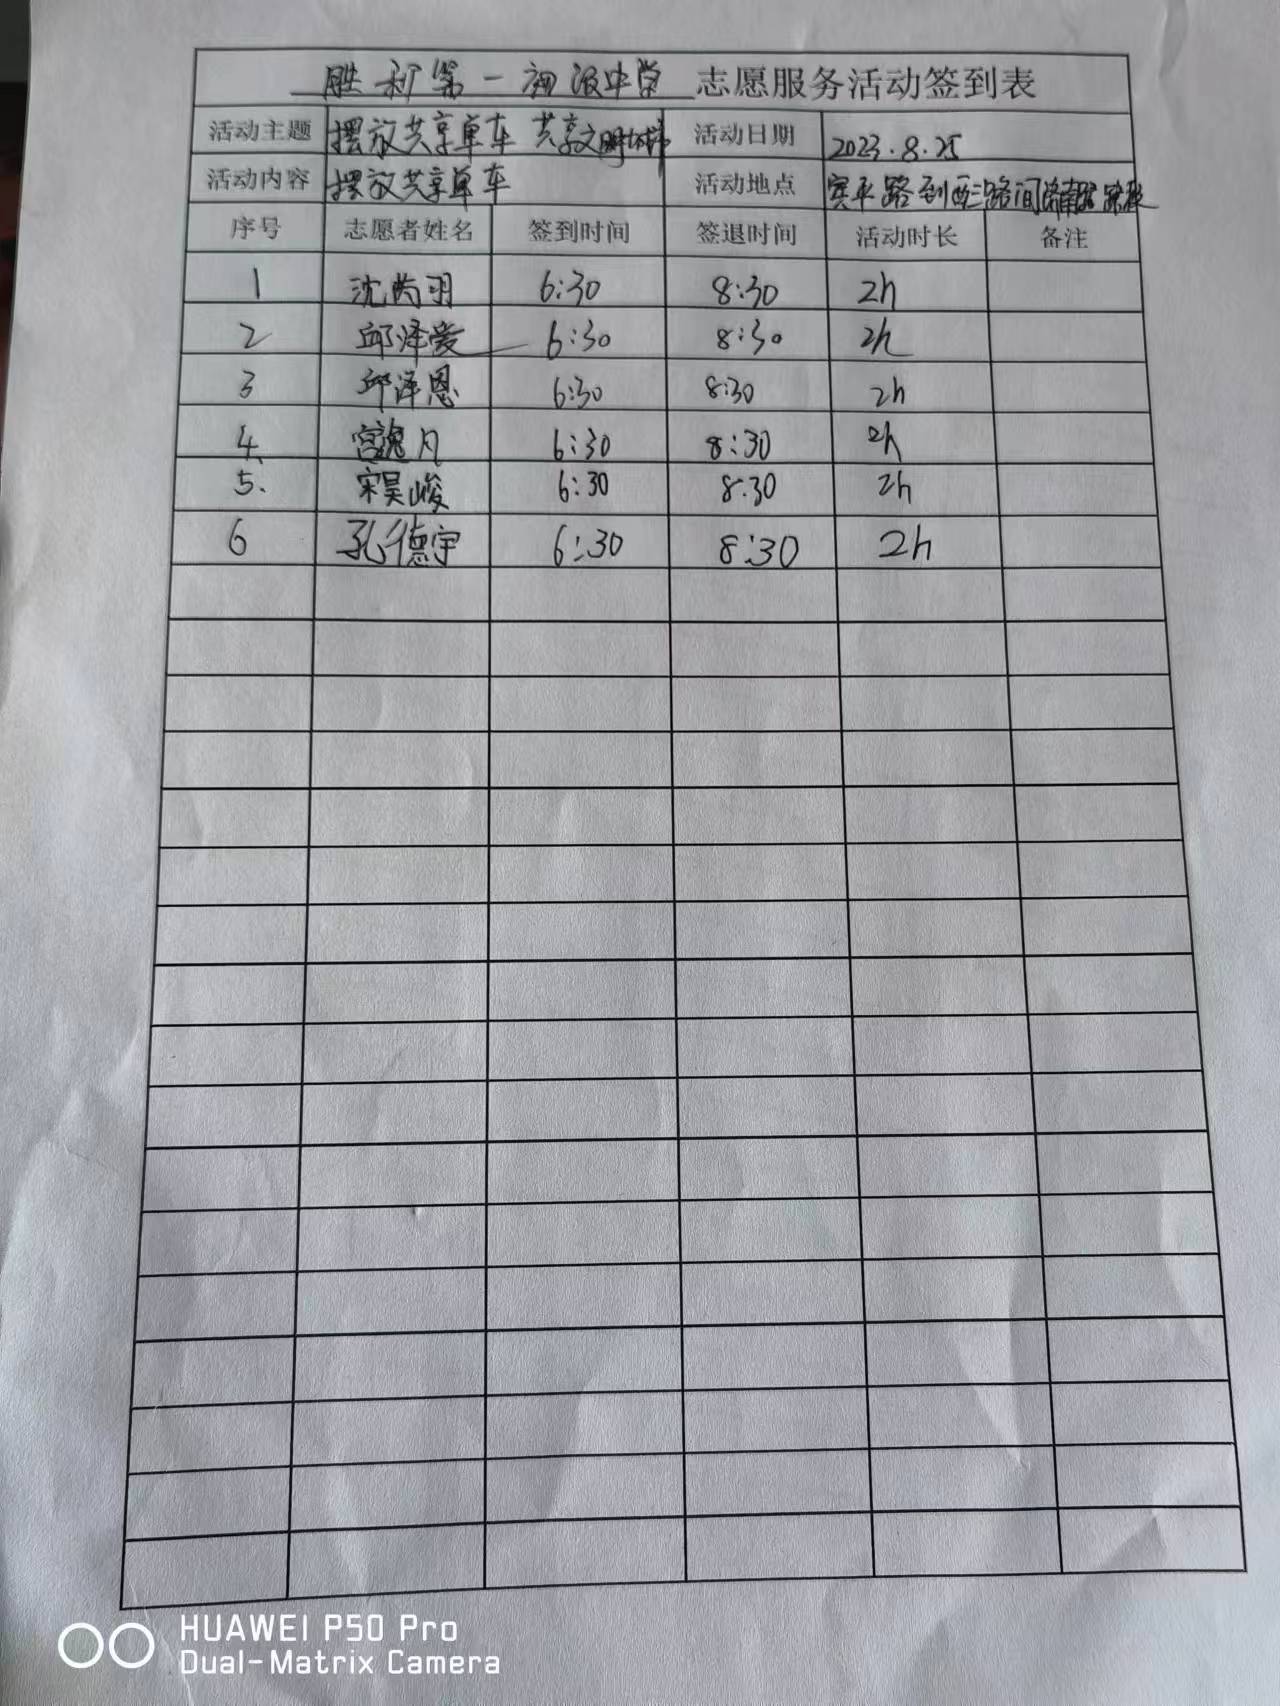 胜利第一初级中学 志愿服务活动签到表
活动主题 摆放共享单车 共享文明 活动日期 2023.8.25
活动内容 摆放共享单车 活动地点 路到西三路间济南路路段
序号 志愿者姓名 签到时间 签退时间 活动时长 备注
1 沈芮羽 6:30 8:30 2h
2 邱泽爱 6:30 8:30 2h
3 邱泽恩 6:30 8:30 2h
4 宫逸凡 6:30 8:30 2h
5. 宋昊峻 6:30 8:30 2h
6 孔德宇 6:30 8:30 2h
HUAWEI P50 Pro
Dual-Matrix Camera